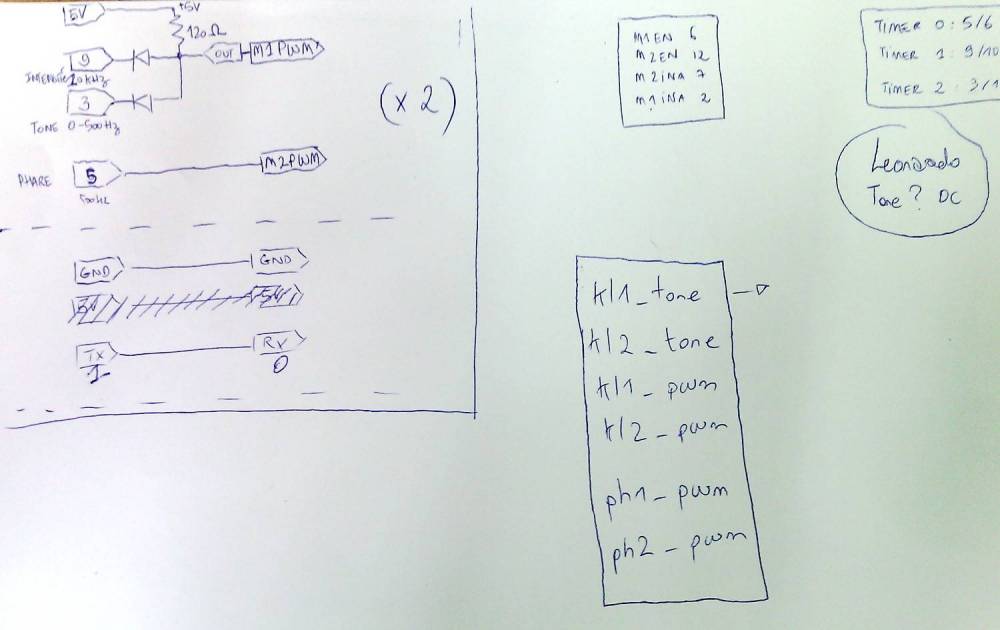 5V
+5V
120Ω
9
OUT
M1PWM
20kHz
3
TONE 0-500Hz
(x2)
PHARE
5
M2PWM
500Hz
GND
GND
5V
Tx
1
RX
0
M1EN 6
M2EN 12
M2iNA 7
M1iNA 2
TIMER 0 : 5/6
TIMER 1 : 9/10
TIMER 2 : 3/1
Leonardo
Tone? DC
kl1_tone
kl2_tone
kl1_pwm
kl2_pwm
ph1_pwm
ph2_pwm